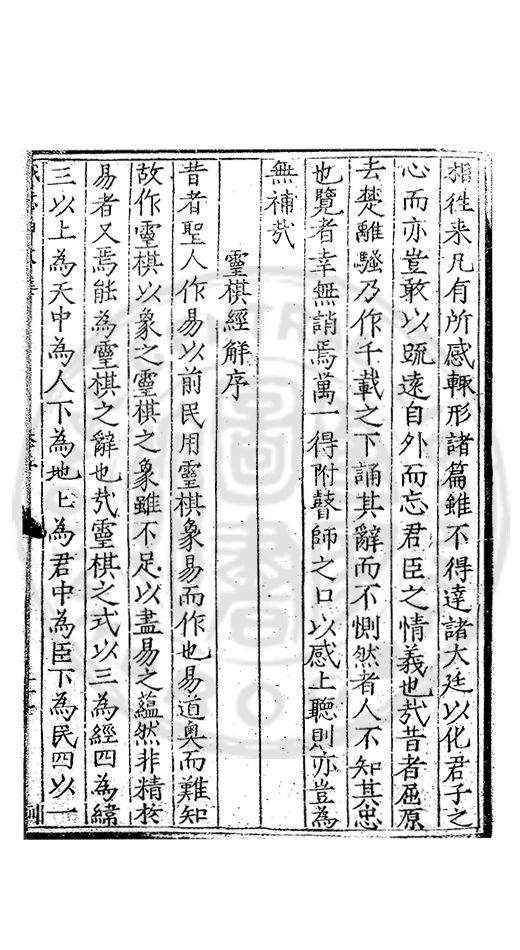 相徃来凡有所感輙形諸篇雖不得達諸大廷以化君子之
心而亦豈敢以踈遠自外而忘君臣之情義也㢤昔者屈原
去楚離騷乃作千載之下誦其辭而不惻然者人不知其忠
也覽者幸無誚焉萬一得附瞽師之口以感上聽則亦豈為
無補㢤
靈棋經解序
昔者聖人作易以前民用靈棋象易而作也易道奥而難知
故作靈棋以象之靈棋之象雖不足以盡易之蘊然非精扵
易者又焉能為靈棋之辭也㢤靈棋之式以三為經四為緯
三以上為天中為人下為地上為君中為臣下為民四以一